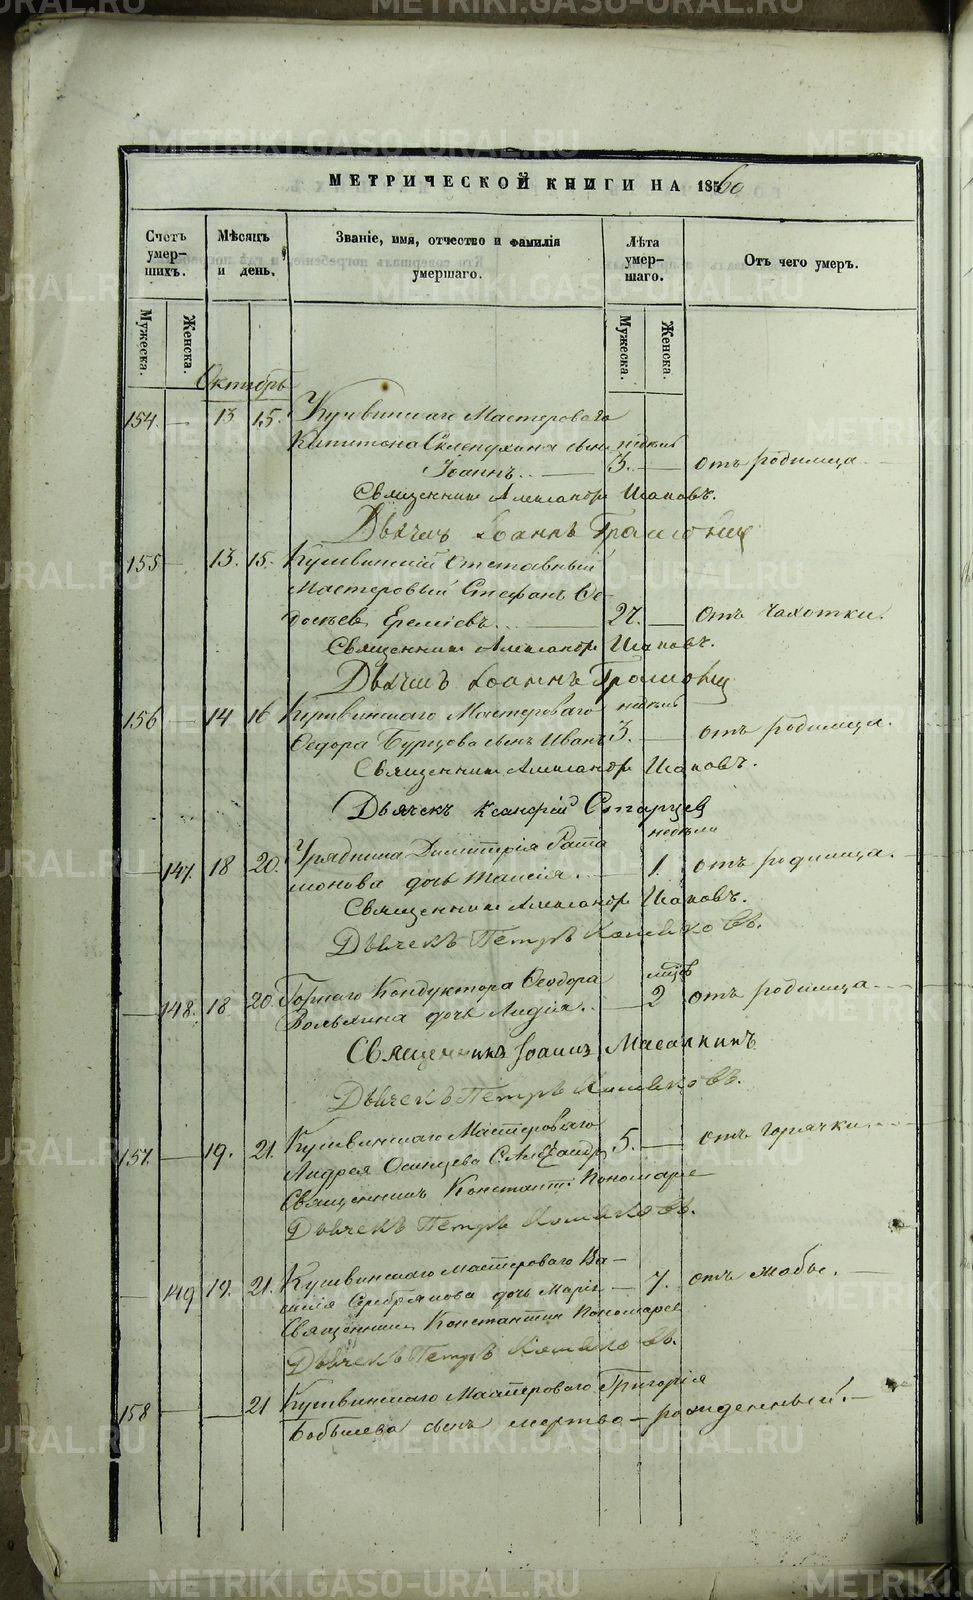 МЕТРИЧЕСКОЙ КНИГИ НА 1860
Счетъ умер-шихъ.
Мѣсяцъ и день.
Званіе, имя, отчество и фамилія умершаго.
Лѣта умер-шаго.
Отъ чего умеръ.
Мужеска.
Женска.
Мужеска.
Женска.
Октябрь
154. — 13 15. Кушвинскаго Мастероваго
Капитона сынъ недѣль
Іоаннъ. — 3. — отъ родимца
Священникъ Александръ
Дьячекъ Іоаннъ
155 — 13. 15. Кушвинскій Отставный
Мастеровый Стефанъ Ѳе-
досѣевъ Еремѣевъ. — 27. — отъ чахотки.
Священникъ Александръ
Дьячекъ Іоаннъ
156 — 14 16 Кушвинскаго Мастероваго недѣль
Ѳедора Бурцова сынъ Иванъ 3. — отъ родимца.
Священникъ Александръ
Дьячекъ Старцев
недѣли
— 147. 18 20. Урядника Димитрія
дочь Таисія. — 1. отъ родимца.
Священникъ Александръ
Дьячекъ Петръ
мѣсяц
— 148. 18 20. Горнаго Кондуктора Ѳеодора
дочь Лидія. — 2 отъ родимца
Священникъ Іоаннъ
Дьячекъ Петръ
157. — 19. 21. Кушвинскаго Мастероваго
Андрея Осинцева С. Александръ 5. — отъ горячки.
Священникъ Константинъ Пономарев
Дьячекъ Петръ
— 149 19. 21. Кушвинскаго Мастероваго Ва-
силія Серебрякова дочь Марія — 7. отъ жабы.
Священникъ Константинъ Пономарев
Дьячекъ Петръ
158 — — 21 Кушвинскаго Мастероваго Григорія
сынъ мертво-рожденный.
METRIKI.GASO-URAL.RU